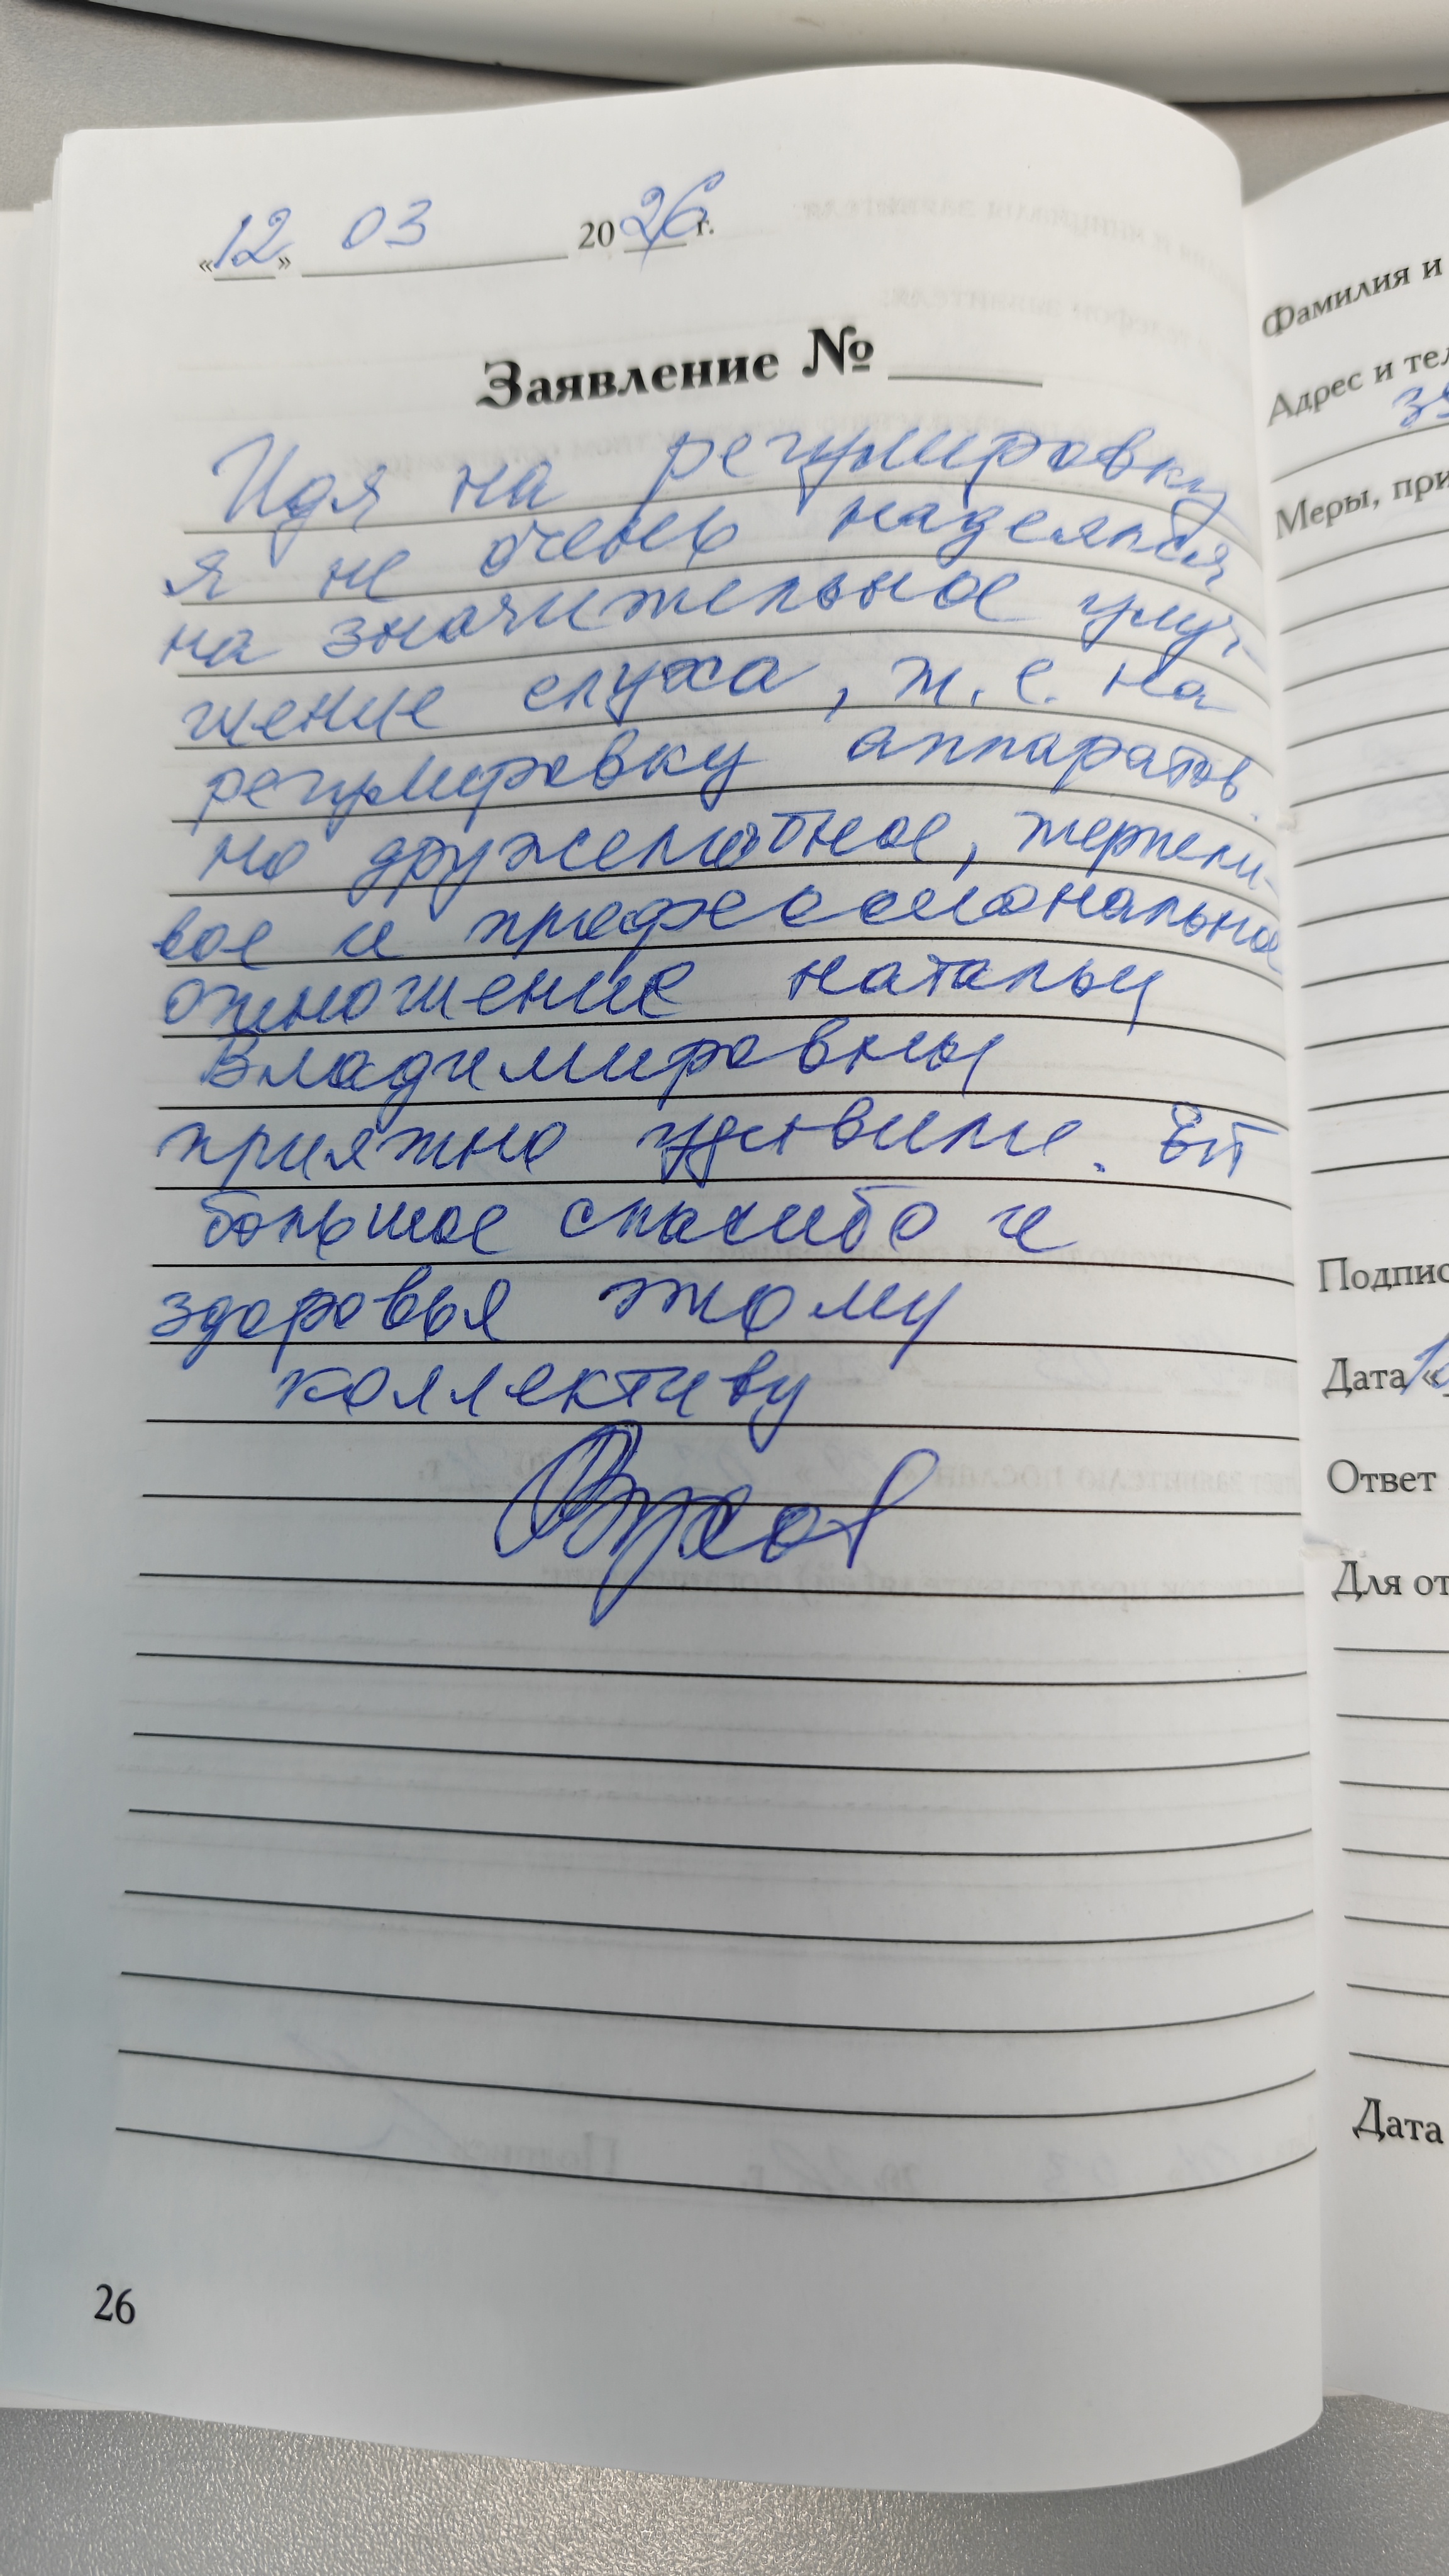 «12» 03 2026 г.
Заявление №
Идя на регулировку
я не очень надеялся
на значительное улуч-
шение слуха, т.е. на
регулировку аппаратов.
Но дружелюбное, терпели-
вое и профессиональное
отношение Натальи
Владимировны
приятно удивили. Ей
большое спасибо и
здоровья этому
коллективу
26
Фамилия и
Адрес и тел
Меры, при
Подпис
Дата «
Ответ
Для от
Дата